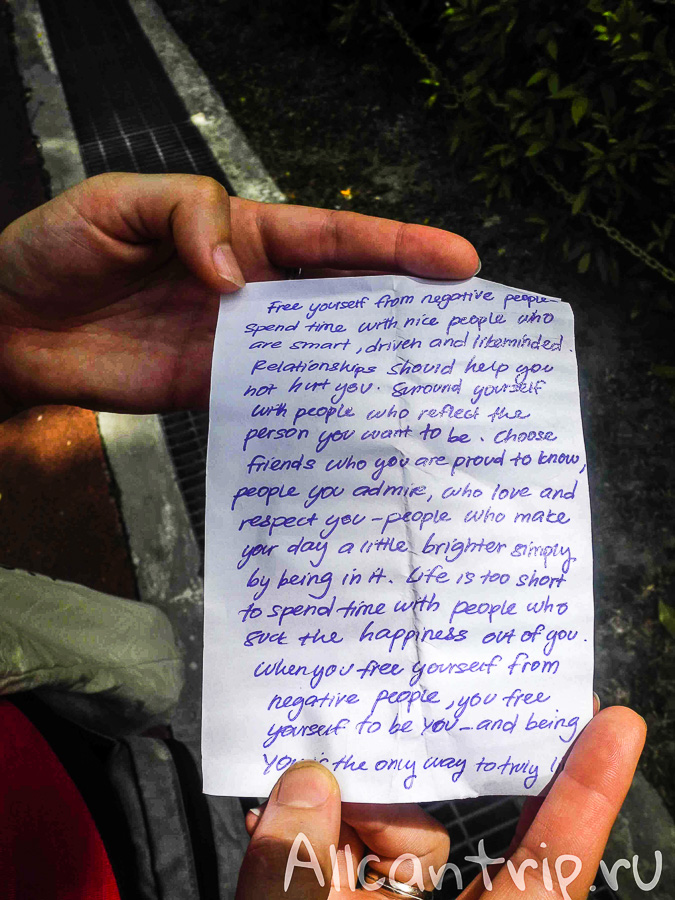 Free yourself from negative people-
spend time with nice people who
are smart, driven and likeminded.
Relationships should help you
not hurt you. Surround yourself
with people who reflect the
person you want to be. Choose
friends who you are proud to know,
people you admire, who love and
respect you - people who make
your day a little brighter simply
by being in it. Life is too short
to spend time with people who
suck the happiness out of you.
When you free yourself from
negative people, you free
yourself to be YOU - and being
YOU is the only way to truly
Allcantrip.ru